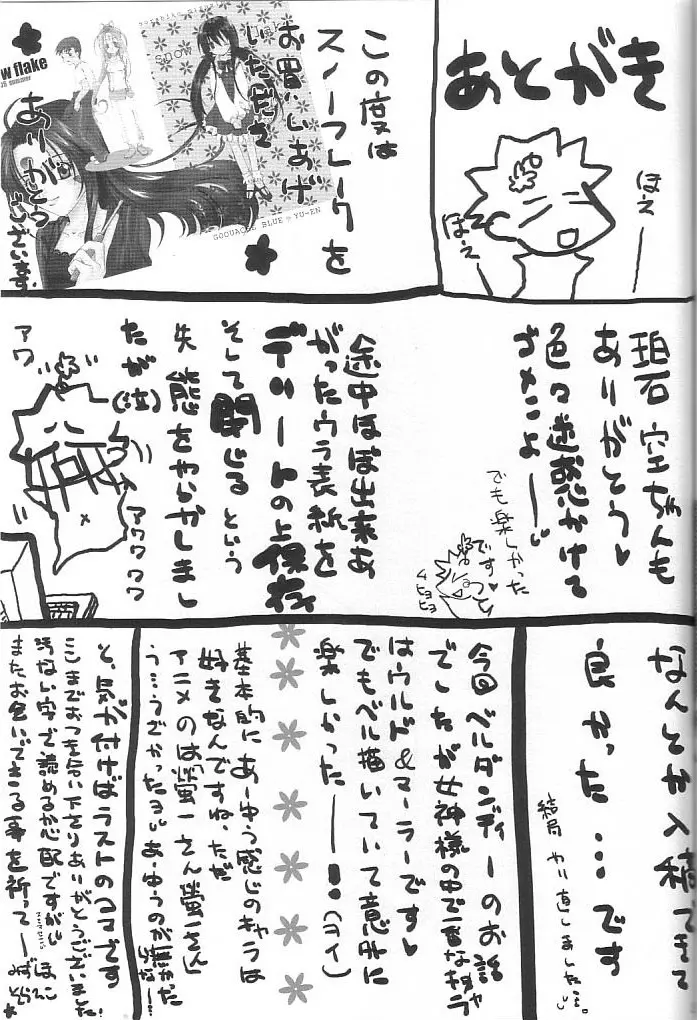 あとがき
ほえ――
ほえ――
この度は
スノーフレークを
お買いあげ
いただき
ありがとう
ございます。
w flake
GOUACHE BLUE
YU-EN
珀石 空ちゃんも
ありがとう♥
色々迷惑かけて
ゴメンよ――
でも楽しかった
ですっ
ムヒョヒョ
途中ほぼ出来あ
がったウラ表紙を
デリートの上保存
そして閉じるという
失態をやらかしまし
たが(泣)
アワ
アワワワワ
なんとか入稿できて
良かった…です
結局 やり直しました…。
今回ベルダンディーのお話
でしたが女神様の中で一番なキャラ
はウルド&マーラーです♥
でもベル描いていて意外に
楽しかった――!(ヨイ)
基本的にあーゆう感じのキャラは
好きなんですね。ただ
アニメのは「螢一さん螢一さん」
う…うごかったよ。あーゆうのが無かった
と、気が付けばラストのコマです
ここまでおつき合い下さりありがとうございました!
汚ない字で読めるか心配ですが。ほんに
またお会いできる事を祈って――みずと